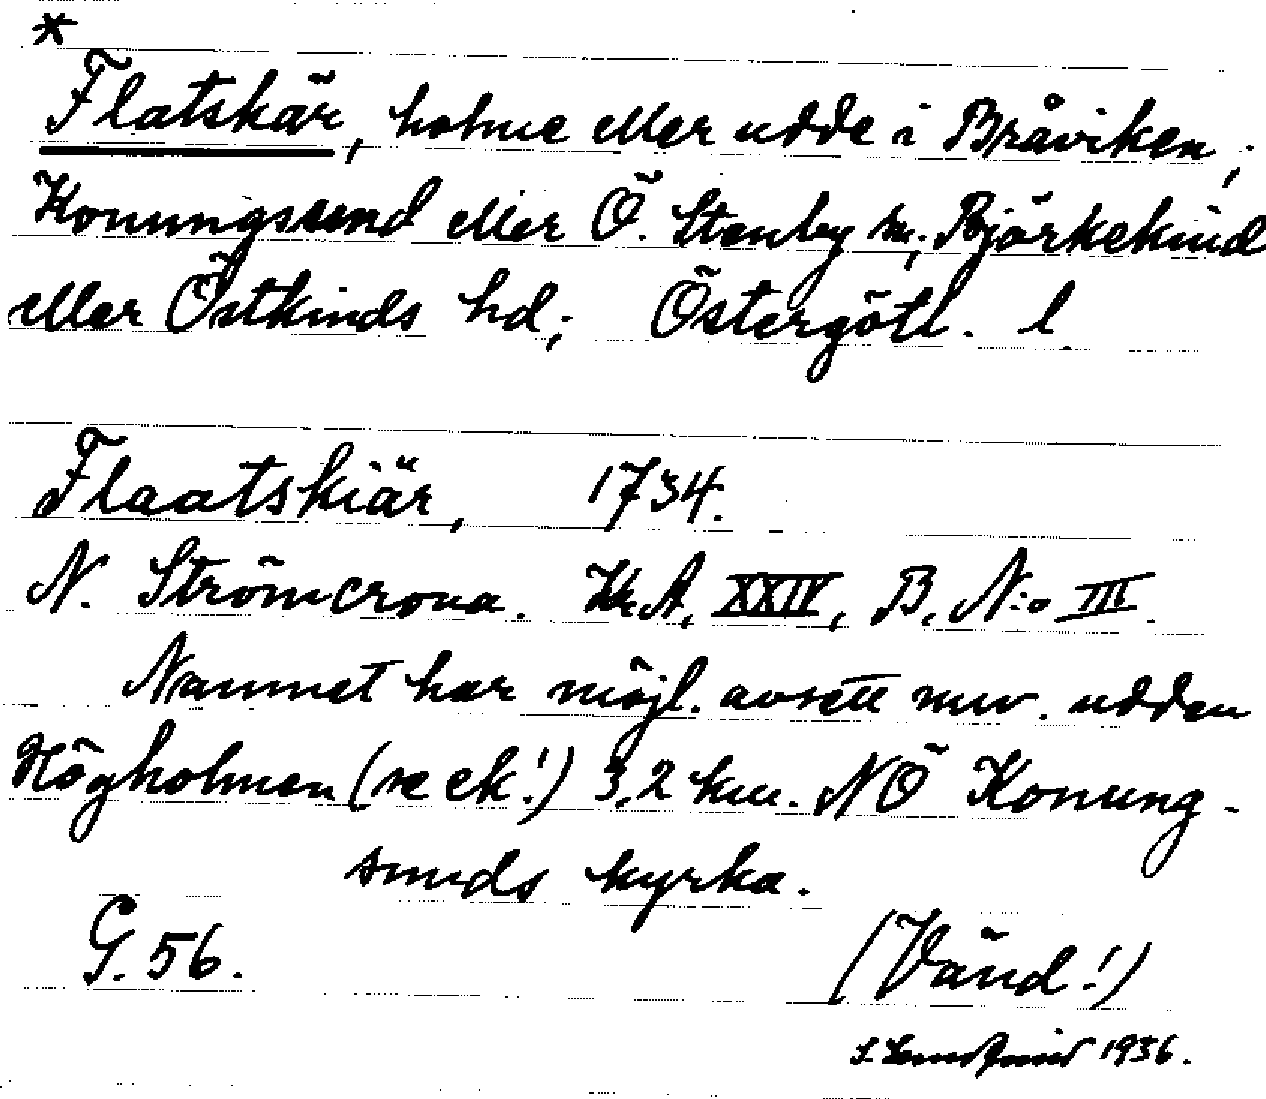 *
Flatskär, holme eller udde i Bråviken;
Konungsund eller Ö. Stenby sn; Björkekind
eller Östkinds hd; Östergötl. l.
Flaatskiär, 1734.
N. Strömcrona. Kr.A, XXIV, B. N:o III.
Namnet har möjl. avsett nuv. udden
Högholmen (se ek!) 3,2 km. NÖ Konung-
sunds kyrka.
G. 56.
(Vänd!)
1936.